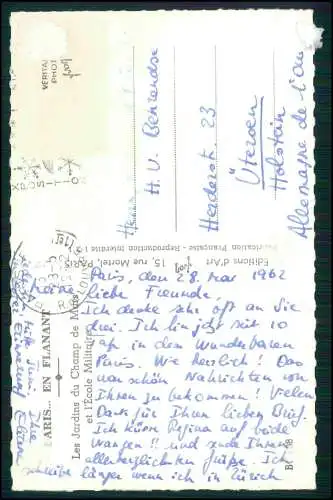 Paris, den 28. Mai 1962
Meine
liebe Freunde,
Ich denke sehr oft an Sie
drei. Ich bin jetzt seit 10
in dem Wunderbaren
Paris. Wie herrlich! Das
war schön Nachrichten von
Ihnen zu bekommen! Vielen
Dank für Ihren lieben Brief.
Ich küsse Regina auf beide
Wangen!! und sende Ihnen
allerherzlichsten Grüße. Ich
schreibe länger wenn ich in Zürich
Juni. Ihre
Herrn
H. U. Behrendse
Herderstr. 23
Üterden
Holstein
Allemagne de l'
VERITABLE
PHOTO
Editions d'Art yvon 15, rue Martel, PARIS
Fabrication Française - Reproduction Interdite
PARIS... EN FLANANT
Les Jardins du Champ de Mars
et l'Ecole Militaire